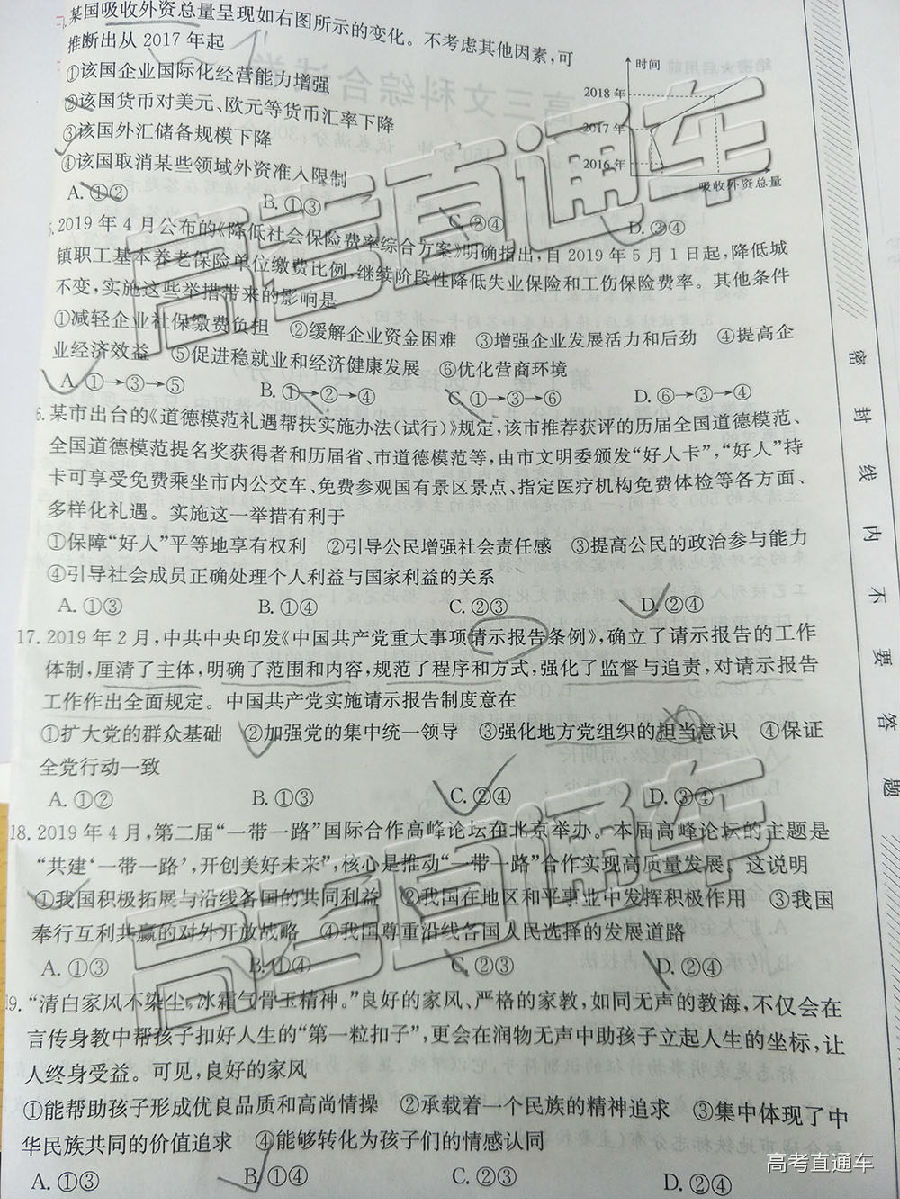 某国吸收外资总量呈现如右图所示的变化。不考虑其他因素,可
推断出从2017年起
①该国企业国际化经营能力增强
②该国货币对美元、欧元等货币汇率下降
③该国外汇储备规模下降
④该国取消某些领域外资准入限制
A. ①② B. ①③ C. ②④ D. ③④
时间
2018年
2017年
2016年
吸收外资总量
2019年4月公布的《降低社会保险费率综合方案》明确指出,自2019年5月1日起,降低城
镇职工基本养老保险单位缴费比例,继续阶段性降低失业保险和工伤保险费率。其他条件
不变,实施这些举措带来的影响是
①减轻企业社保缴费负担 ②缓解企业资金困难 ③增强企业发展活力和后劲 ④提高企
业经济效益 ⑤促进稳就业和经济健康发展 ⑥优化营商环境
A. ①→③→⑤ B. ①→②→④ C. ①→③→⑥ D. ⑥→③→④
6. 某市出台的《道德模范礼遇帮扶实施办法(试行)》规定,该市推荐获评的历届全国道德模范、
全国道德模范提名奖获得者和历届省、市道德模范等,由市文明委颁发“好人卡”,“好人”持
卡可享受免费乘坐市内公交车、免费参观国有景区景点、指定医疗机构免费体检等各方面、
多样化礼遇。实施这一举措有利于
①保障“好人”平等地享有权利 ②引导公民增强社会责任感 ③提高公民的政治参与能力
④引导社会成员正确处理个人利益与国家利益的关系
A. ①③ B. ①④ C. ②③ D. ②④
17. 2019年2月,中共中央印发《中国共产党重大事项请示报告条例》,确立了请示报告的工作
体制,厘清了主体,明确了范围和内容,规范了程序和方式,强化了监督与追责,对请示报告
工作作出全面规定。中国共产党实施请示报告制度意在
①扩大党的群众基础 ②加强党的集中统一领导 ③强化地方党组织的担当意识 ④保证
全党行动一致
A. ①② B. ①③ C. ②④ D. ③④
18. 2019年4月,第二届“一带一路”国际合作高峰论坛在北京举办。本届高峰论坛的主题是
“共建‘一带一路’,开创美好未来”,核心是推动“一带一路”合作实现高质量发展。这说明
①我国积极拓展与沿线各国的共同利益 ②我国在地区和平事业中发挥积极作用 ③我国
奉行互利共赢的对外开放战略 ④我国尊重沿线各国人民选择的发展道路
A. ①③ B. ①④ C. ②③ D. ②④
19. “清白家风不染尘,冰霜气骨玉精神。”良好的家风、严格的家教,如同无声的教诲,不仅会在
言传身教中帮孩子扣好人生的“第一粒扣子”,更会在润物无声中助孩子立起人生的坐标,让
人终身受益。可见,良好的家风
①能帮助孩子形成优良品质和高尚情操 ②承载着一个民族的精神追求 ③集中体现了中
华民族共同的价值追求 ④能够转化为孩子们的情感认同
A. ①③ B. ①④ C. ②③ D. ②④
密封线内不要答题
高考直通车
高考直通车
高考直通车